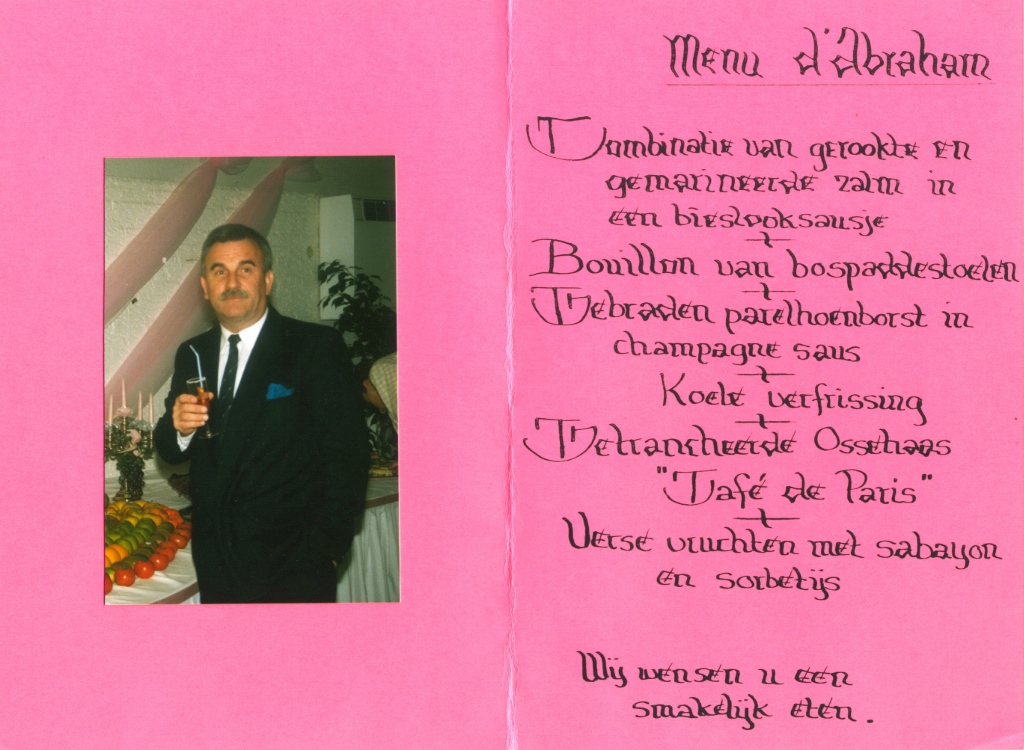 Menu d'Abraham
Combinatie van gerookte en
gemarineerde zalm in
een bieslooksausje
Bouillon van bospaddestoelen
Gebraden parelhoenborst in
champagne saus
Koele verfrissing
Getrancheerde Ossehaas
"Café de Paris"
Verse vruchten met sabayon
en sorbetijs
Wij wensen u een
smakelijk eten.